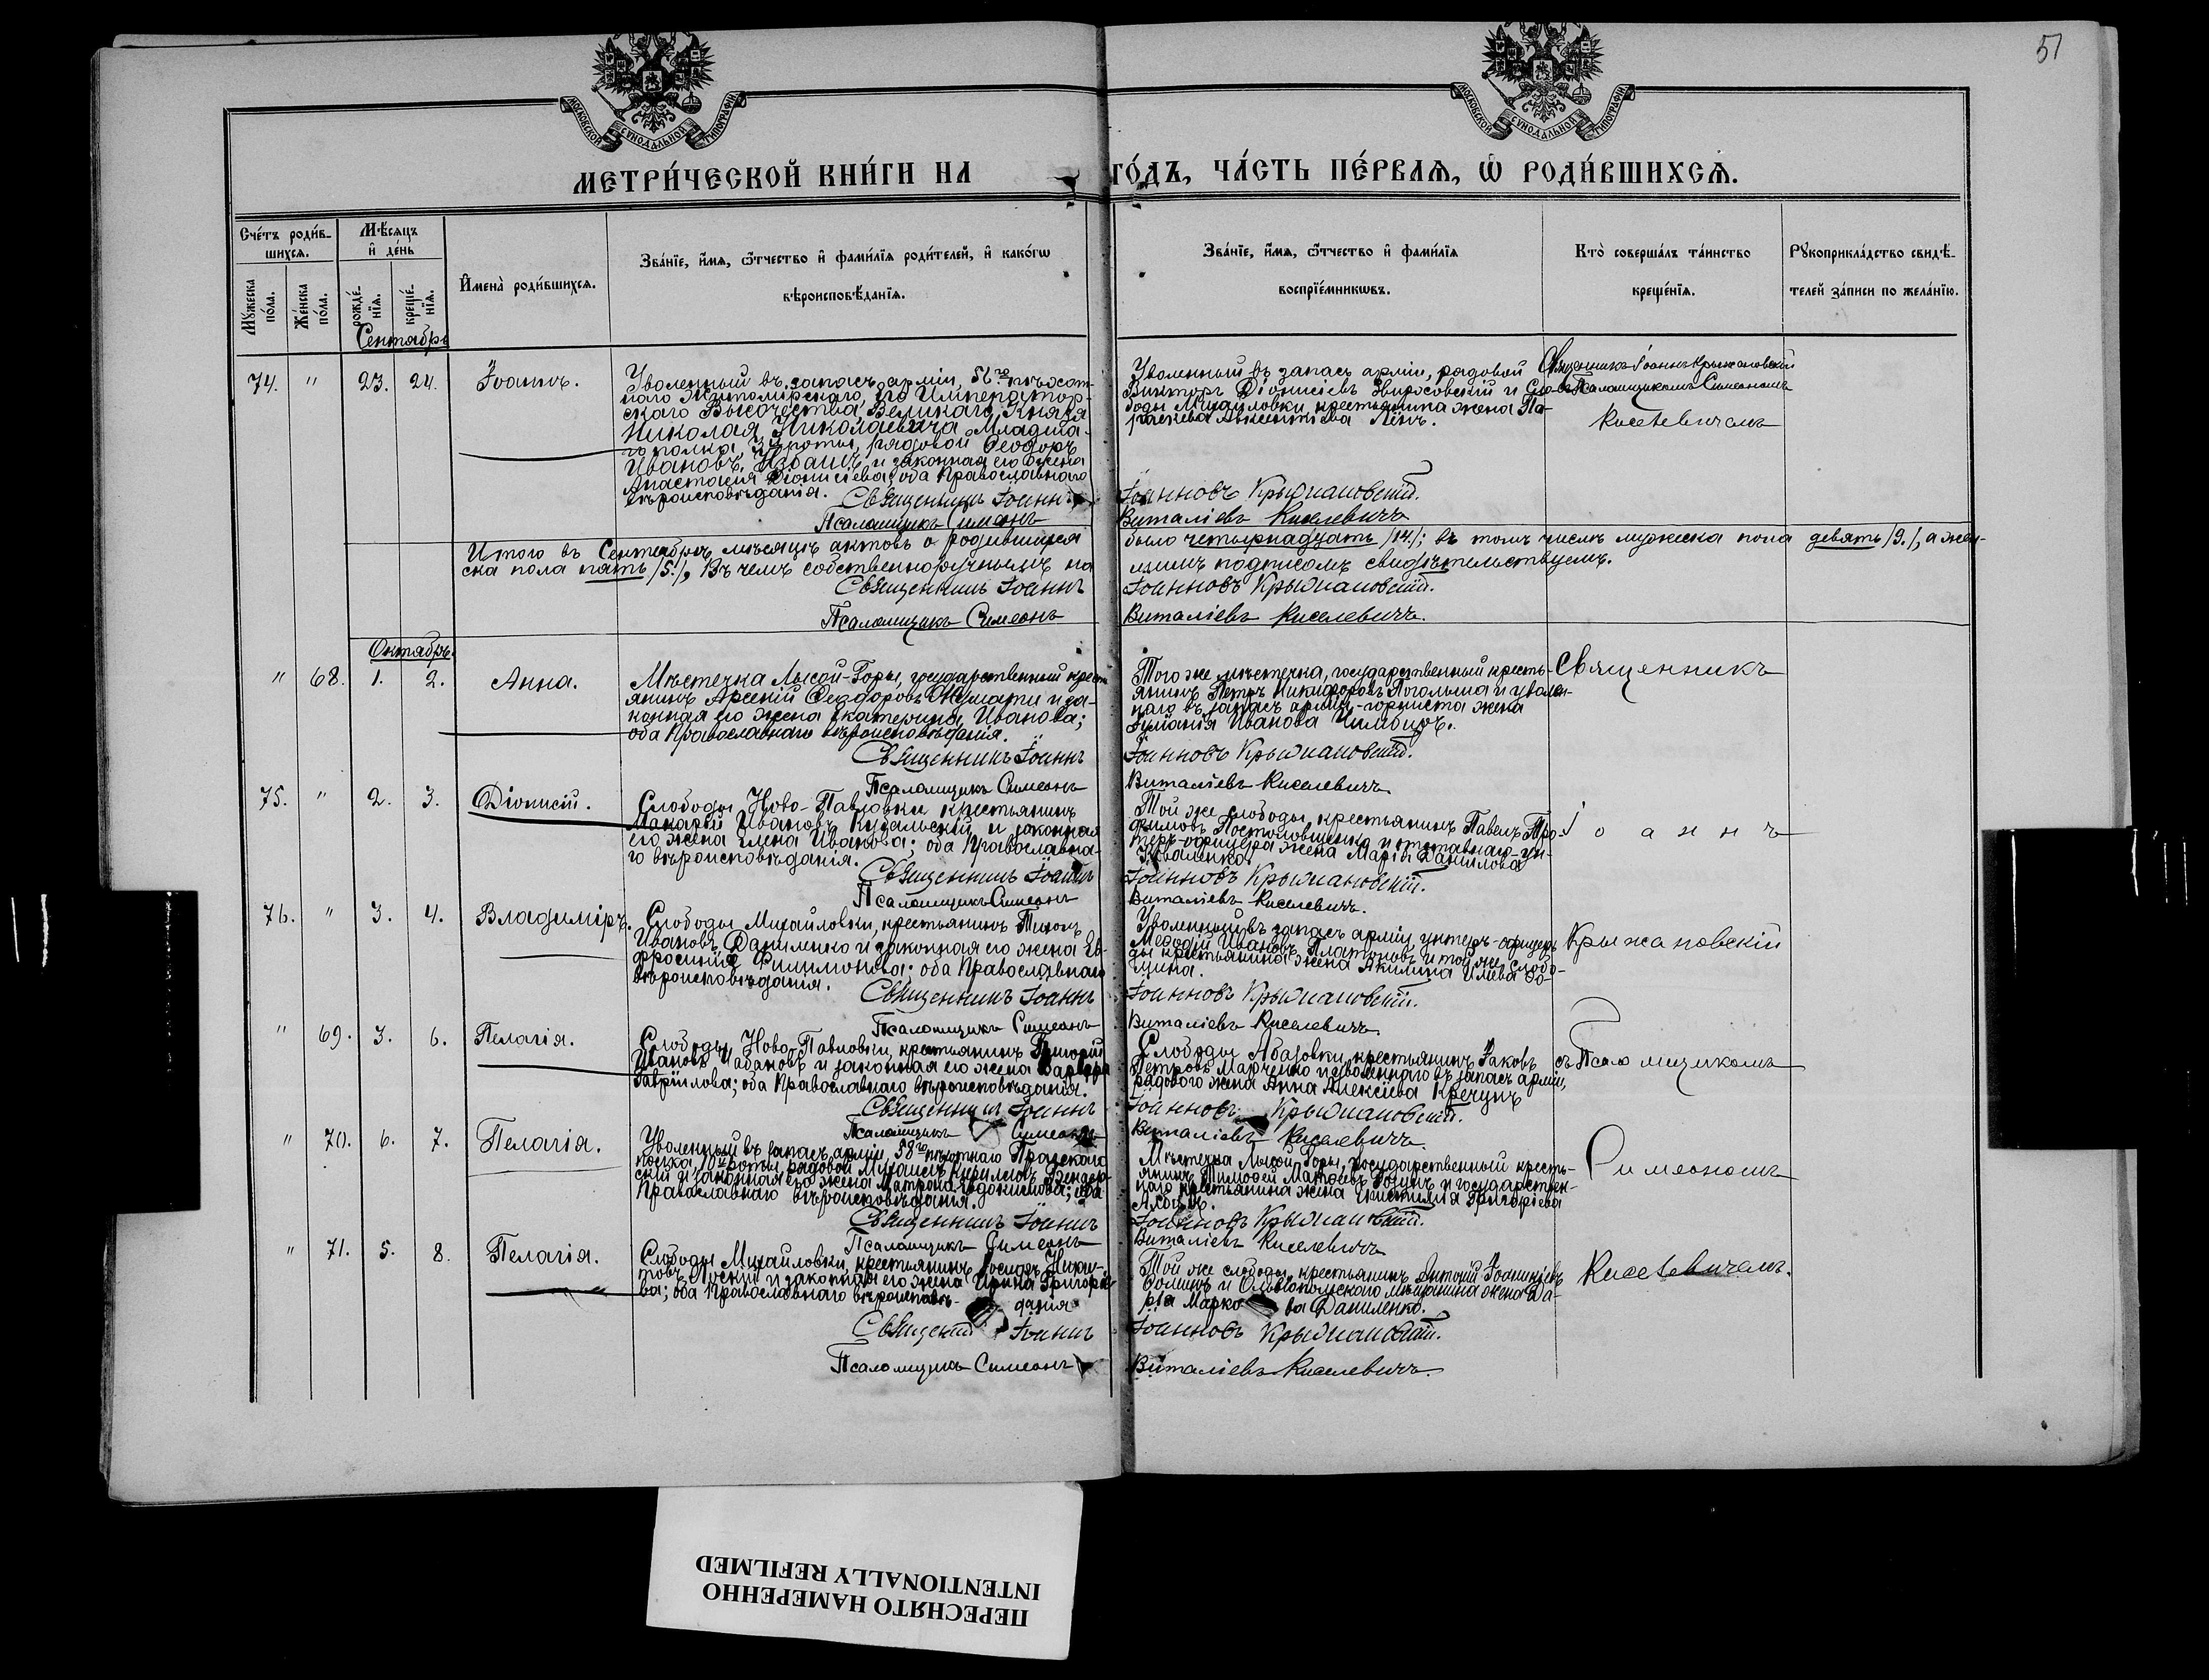 51
МОСКОВСКОЙ СУНОДАЛЬНОЙ ТИПОГРАФІИ
МОСКОВСКОЙ СУНОДАЛЬНОЙ ТИПОГРАФІИ
МЕТРИ́ЧЕСКОЙ КНИ́ГИ НА ГО́ДЪ, ЧА́СТЬ ПЕ́РВАѦ, Ѡ РОДИ́ВШИХСѦ.
Сче́тъ роди́в-
шихсѧ.
Мꙋжеска по́ла.
Же́нска по́ла.
Мѣ́сѧцъ
и де́нь
рожде́-
нїѧ.
креще́-
нїѧ.
Имена̀ роди́вшихсѧ.
Зва́нїе, и́мѧ, ѻ́тчество и фами́лїѧ роди́телей, и како́гѡ
вѣроисповѣ́данїѧ.
Зва́нїе, и́мѧ, ѻ́тчество и фами́лїѧ
воспрїе́мникѡвъ.
Кто̀ соверша́лъ та́инство
креще́нїѧ.
Рꙋкоприкла́дство свидѣ́-
телей за́писи по жела́нїю.
Сентябрь
74. " 23. 24. Іоаннъ.
Уволенный въ запасъ арміи, 56го пѣхот-
наго Житомирскаго, Его Император-
скаго Высочества Великаго Князя
Николая Николаевича Младша-
го полка, роты, рядовой Ѳеодоръ
Ивановъ и законная его жена
Анастасія Діонисіева; оба Православнаго
вѣроисповѣданія.
Священникъ Іоаннъ
Псаломщикъ Симеонъ
Уволенный въ запасъ арміи, рядовой
Викторъ Діонисіевъ и Сло-
боды Михайловки крестьянина жена Па-
раскева
Іоанновъ Крыжановскій.
Виталіевъ Киселевичъ
Священникъ Іоаннъ Крыжановскій
съ Псаломщикомъ Симеономъ
Киселевичемъ
Итого въ Сентябрѣ мѣсяцѣ актовъ о родившихся было четырнадцать /14./; въ томъ числѣ мужеска пола девять /9./, а жен-
ска пола пять /5./, Въ чемъ собственноручнымъ на шимъ подписомъ свидѣтельствуемъ.
Священникъ Іоаннъ Іоанновъ Крыжановскій.
Псаломщикъ Симеонъ Виталіевъ Киселевичъ.
Октябрь.
" 68. 1. 2. Анна.
Мѣстечка Лысой-Горы, государственный кресть
янинъ Арсеній Ѳеодоровъ и за-
конная его жена Екатерина Иванова;
оба Православнаго вѣроисповѣданія.
Священникъ Іоаннъ
Псаломщикъ Симеонъ
Того же мѣстечка, государственный кресть-
янинъ Петръ Никифоровъ и уволен-
наго въ запасъ арміи-горниста жена
Иванова
Іоанновъ Крыжановскій.
Виталіевъ Киселевичъ
Священникъ
75. " 2. 3. Діонисій.
Слободы Ново-Павловки крестьянинъ
Макарій Ивановъ и законная
его жена Елена Иванова; оба Православна-
го вѣроисповѣданія.
Священникъ Іоаннъ
Псаломщикъ Симеонъ
Той же слободы, крестьянинъ Павелъ Тро-
фимовъ и отставнаго ун-
теръ-офицера жена Марія Даниилова
Коваленко.
Іоанновъ Крыжановскій.
Виталіевъ Киселевичъ.
Іоаннъ
76. " 3. 4. Владиміръ.
Слободы Михайловки, крестьянинъ Тихонъ
Ивановъ Даниленко и законная его жена Ев-
фросинія Филимонова; оба Православнаго
вѣроисповѣданія.
Священникъ Іоаннъ
Псаломщикъ Симеонъ
Уволенный въ запасъ арміи унтеръ-офицеръ
Меѳодій Ивановъ Платоновъ и той же слобо-
ды крестьянина жена Акилина
Іоанновъ Крыжановскій.
Виталіевъ Киселевичъ.
Крыжановскій
" 69. 3. 6. Пелагія.
Слободы Ново-Павловки, крестьянинъ Григорій
Ивановъ и законная его жена Варвара
Гавріилова; оба Православнаго вѣроисповѣданія.
Священникъ Іоаннъ
Псаломщикъ Симеонъ
Слободы Абазовки, крестьянинъ Іаковъ
Петровъ Марченко и уволеннаго въ запасъ арміи,
рядового жена Анна Алексіева Кречунъ
Іоанновъ Крыжановскій.
Виталіевъ Киселевичъ
съ Псаломщикомъ
" 70. 6. 7. Пелагія.
Уволенный въ запасъ арміи 58го пѣхотнаго Прагскаго
полка, 10й роты, рядовой Михаилъ Кирилловъ Бендер-
скій и законная его жена Матрона Евдокимова; оба
Православнаго вѣроисповѣданія.
Священникъ Іоаннъ
Псаломщикъ Симеонъ
Мѣстечка Лысой Горы, государственный кресть-
янинъ Тимоѳей Матѳеевъ и государствен-
наго крестьянина жена Григоріева
Іоанновъ Крыжановскій.
Виталіевъ Киселевичъ
Симеономъ
" 71. 5. 8. Пелагія.
Слободы Михайловки, крестьянинъ Іосифъ Ники-
товъ и законная его жена Ирина Григоріе-
ва; оба Православнаго вѣроисповѣ- данія
Іоаннъ
Псаломщикъ Симеонъ
Той же слободы, крестьянинъ Антоній Іоанникіевъ
и Ольвіопольскаго мѣщанина жена Да-
рія Марко ва Даниленко.
Іоанновъ Крыжановскій.
Виталіевъ Киселевичъ.
Киселевичемъ.
ПЕРЕСНЯТО НАМЕРЕННО
INTENTIONALLY REFILMED